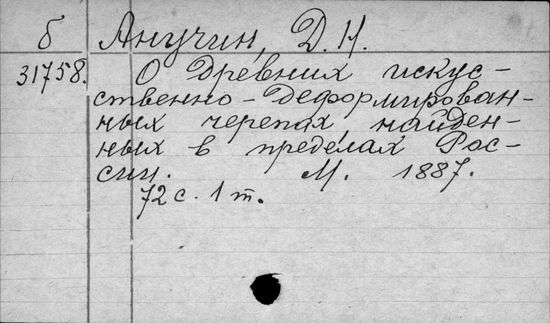 б Анучин, Д. Н.
31758. О древних искус-
ственно-деформирован-
ных черепах, найден-
ных в пределах Рос-
сии. М. 1887.
72 с. 1 т.